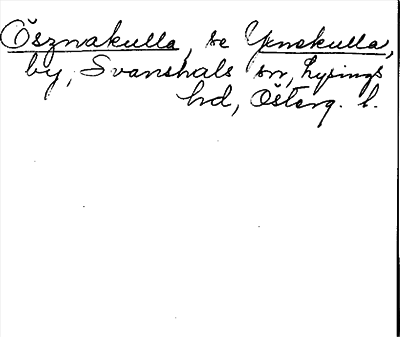 Ösznakulla, se Yxnekulla,
by, Svanshals sn, Lysings
hd, Österg. l.